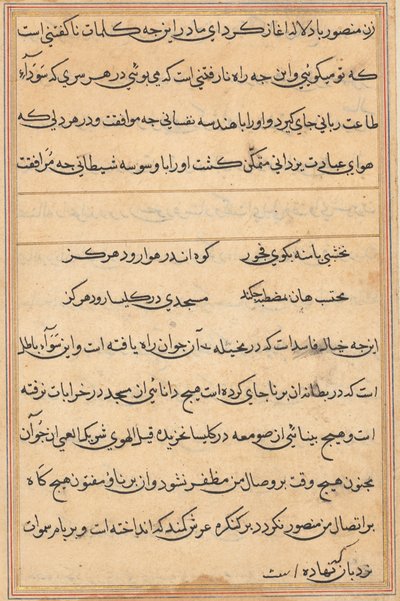 زن منصور با دلاله اغاز کرد ای مادر این چه کلمات ناکفتنی است
که تو میکوئی و این چه راه نارفتنی است که می پوئی در هر سری که سوداء
طاعت ربانی جای کیرد او را با هندسه نفسانی چه موافقت و در هر دلی که
هوای عبادت یزدانی متمکن کشت او را با وسوسه شیطانی چه مرافقت
نخشبی پا منه بکوی فجور کوه اندر هوا رود هرکز
محتسب هان مصطبه چکند مسجدی در کلیسا رود هرکز
این چه خیال فاسد است که در مخیله آن جوان راه یافته است و این سوداء باطل
است که در بطانه ان برنا جای کرده است هیچ دانائی از مسجد در خرابات نرفته
است و هیچ بینائی از صومعه در کلیسا نخزیده قیل الهوی شریک العمی ان جوان
مجنون هیچ وقت بر وصال من مظفر نشود و ان برناء مفتون هیچ کاه
بر اتصال من منصور نکردد بر کنکره عرش کمند که انداخته است و بر بام سموات
نردبان که نهاده است